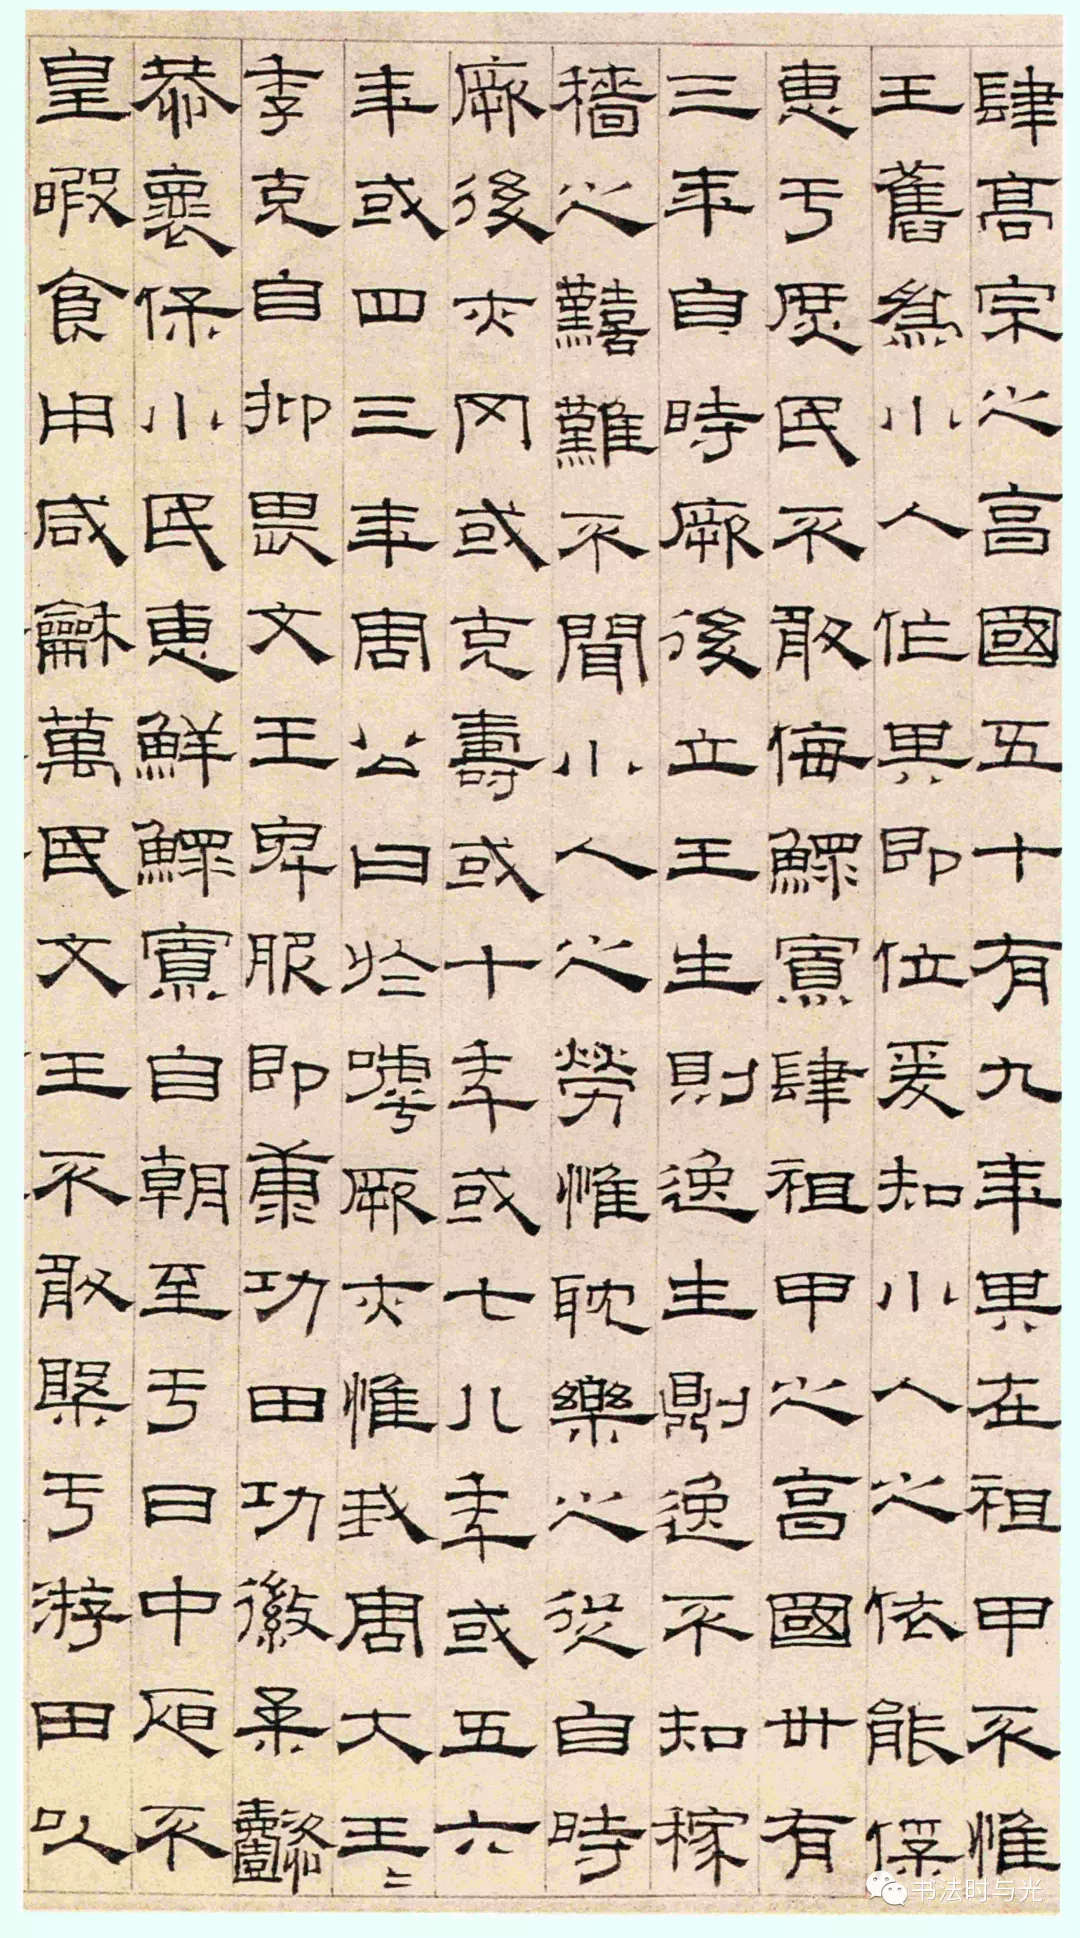 肆高宗之亯國五十有九年其在祖甲不惟
王舊為小人作其即位爰知小人之依能保
惠于庶民不敢侮鰥寡肆祖甲之亯國卅有
三年自時厥後立王生則逸生則逸不知稼
穡之囏難不聞小人之勞惟耽樂之從自時
厥後亦罔或克壽或十年或七八年或五六
年或四三年周公曰於嘑厥亦惟我周大王〻
季克自抑畏文王卑服即康功田功徽柔懿
恭褱保小民惠鮮鰥寡自朝至于日中昃不
皇暇食用咸龢萬民文王不敢槃于游田以
书法时与光